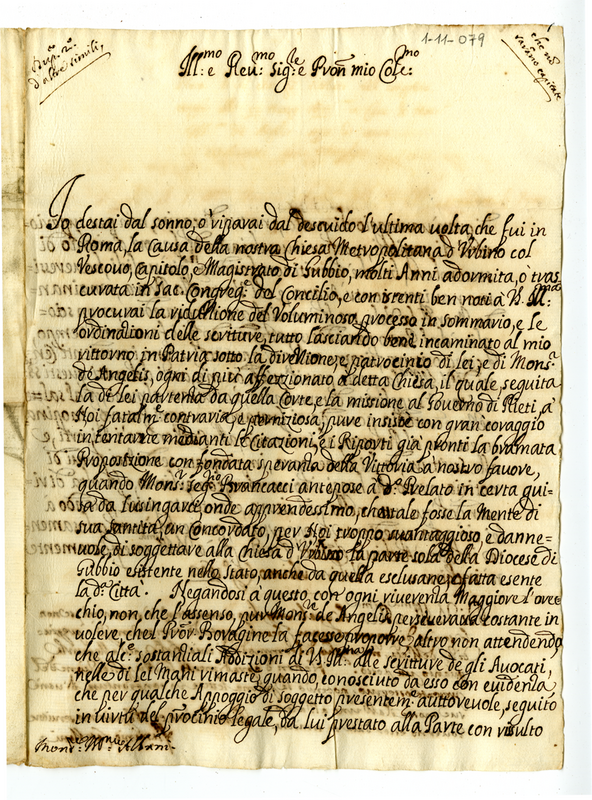 1-11-079
d'altre simili,
che nō
Ill:mo e Reu:mo Sig:re e Pron mio Cole:mo
Io destai dal sonno, ò riparai dal descuido l'ultima uolta, che fui in
Roma, la Causa della nostra Chiesa Metropolitana d'Vrbino col
Vescouo, Capitolo, e Magistrato di Gubbio, molti Anni adormita, ò tras
curata in Sac. Congreg:e del Concilio, e con stenti ben noti à V. S. Ill:ma
procurai la riduttione del Voluminoso processo in sommario, e le
ordinationi delle scritture, tutto lasciando bene incaminato al mio
ritorno in Patria sotto la direttione, e patrocinio di lei, e di Mons:r
de Angelis, ogni di più affezzionato a detta Chiesa, il quale, seguita
la di lei partenza da quella Corte, e la missione al Gouerno di Rieti à
Noi fatalm:e contraria, e perniziosa, pure insisté con gran coraggio
in tentare medianti le Citazioni, e i Riporti già pronti la bramata
Proposizione con fondata speranza della Vittoria à nostro fauore,
quando Mons:r Seg:rio Brancacci antepose à d:o Prelato in certa gui-
sa da lusingarte, onde apprendessimo, che tale fosse la mente di
sua santità, un Concordato, per Noi troppo suantaggioso, e danne=
uole, di soggettare alla Chiesa d'Vrbino la parte sola della Diocese di
Gubbio esistente nello Stato, anche da quella esclusane, e fatta esente
la d:a Città. Negandosi à questo, con ogni riuerenza Maggiore l'orec
chio, non che l'assenso, pur Mons:re de Angelis perseueraua costante in
uolere, che'l Pror Bouagine la facesse proporre, altro non attendendo
che alc:e sostanziali Addizioni di V. S. Ill:ma alle scritture de gli Auocati,
nelle di lei Mani rimaste, quando, conosciuto da esso con euidenza
che per qualche Appoggio di soggetto presentem:e auttoreuole, seguito
in uirtù del procinio legale, da lui prestato alla Parte con risulto
Mons:re Albani.